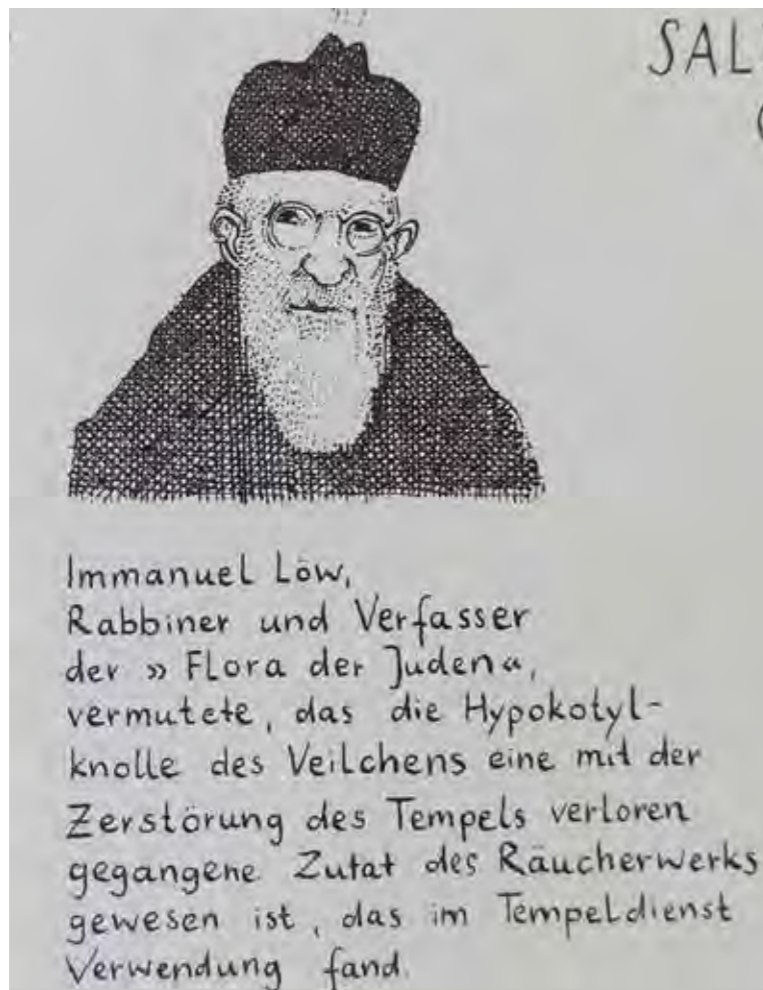 SAL
Immanuel Löw,
Rabbiner und Verfasser
der » Flora der Juden«,
vermutete, das die Hypokotyl-
knolle des Veilchens eine mit der
Zerstörung des Tempels verloren
gegangene Zutat des Räucherwerks
gewesen ist, das im Tempeldienst
Verwendung fand.